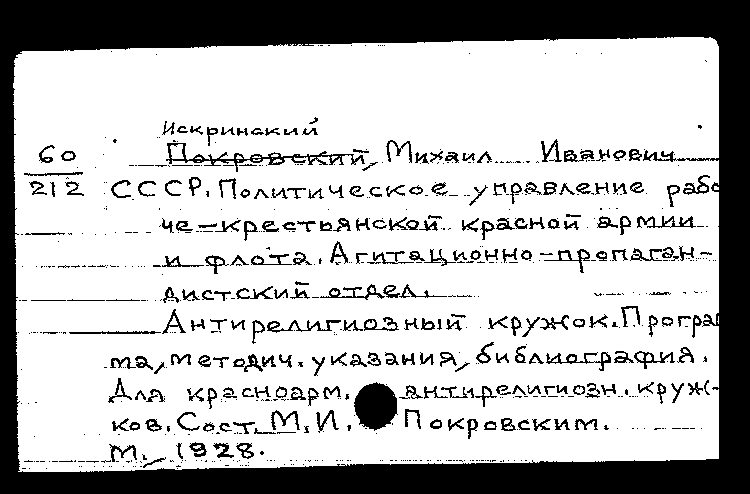 Искринский
60 Покровский, Михаил Иванович
212 СССР. Политическое управление рабо
че-крестьянской красной армии
и флота. Агитационно-пропаган-
дистский отдел.
Антирелигиозный кружок. Програм
ма, методич. указания, библиография.
Для красноарм. антирелигиозн. круж-
ков. Сост. М.И. Покровским.
М., 1928.